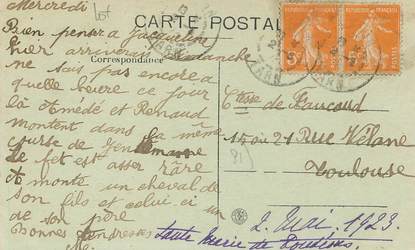 Mercredi
Lot
CARTE POSTALE
Correspondance
Bien penser a Jacqueline
hier arriverons Dimanche
ne sais pas encore a
quelle heure ce jour
là Amédé et Renaud
montent dans la même
Course de Gendemarme
le fet est asser rare
A monte un cheval de
son fils et celui ci un
de son père
Bonnes tendresses
Ctesse de
15 ou 21 Rue Vélane
Toulouse
2 Mai 1923
TARN
TARN